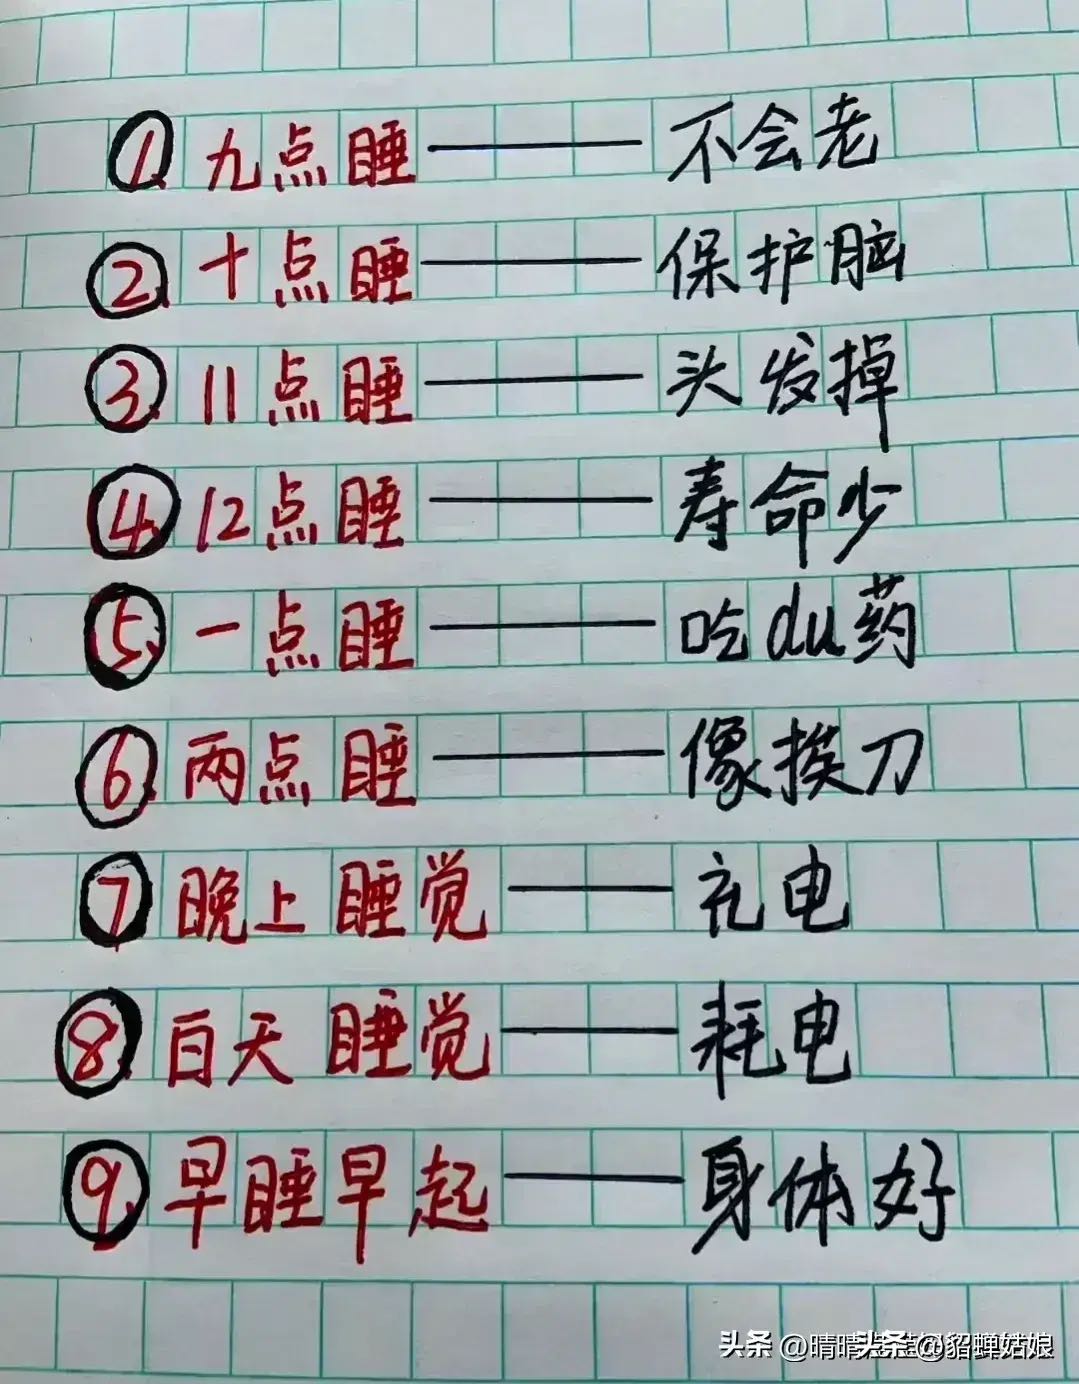 1. 九点睡——不会老
2. 十点睡——保护脑
3. 11点睡——头发掉
4. 12点睡——寿命少
5. 一点睡——吃du药
6. 两点睡——像挨刀
7 晚上睡觉——充电
8. 白天睡觉——耗电
9. 早睡早起——身体好
头条 @晴晴 头条 @貂蝉姑娘